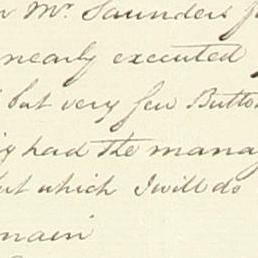 Mr. Saunders
nearly executed
but very few Button
had the manag
but which I will do
main